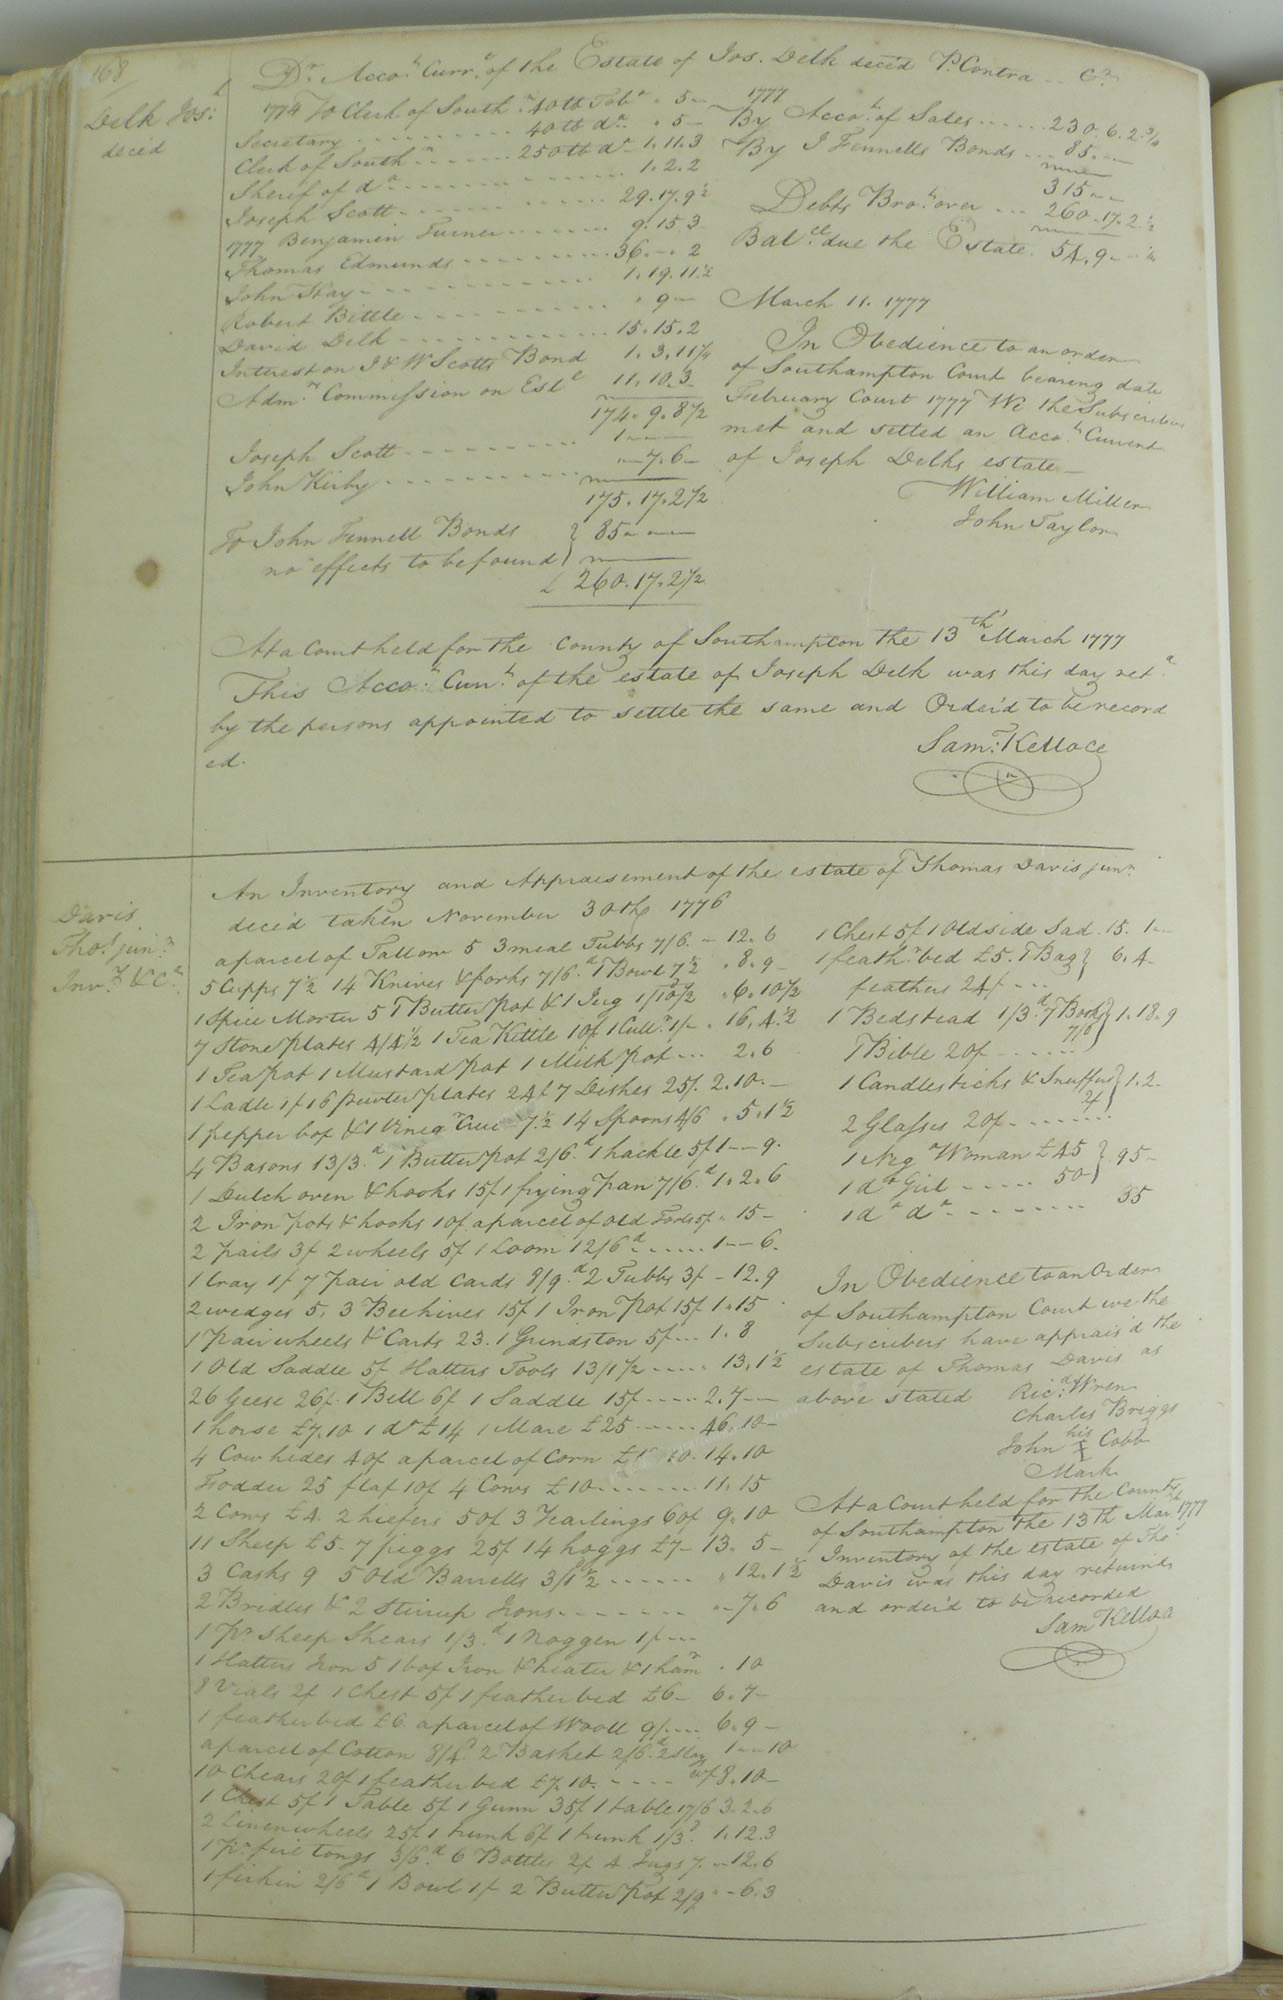 168
Delk Jos:
decd
Dr. Accot. Curr.t of the Estate of Jos. Delk decd Pr. Contra .. Cr.
1774 To Clerk of South.n 40 lb Tob.o . 5 -
Secretary ........ 40 lb do. . 5 -
Clerk of South.n ....... 250 lb do - 1.11.3
Sherif of do ........ 1.2.2
Joseph Scott ........ 29.17.9½
1777 Benjamin Turner ........ 9.15.3
Thomas Edmunds ......... 36. - . 2
John Hay ......... 1.19.11½
Robert Bittle ......... . 9 -
David Delk ......... 15.15.2
Interest on J & W Scotts Bond 1.3.11¼
Adm.rs Commission on Est.e 11.10.3
174.9.8½
Joseph Scott ....... 1 - -
John Kirby ......... - 7.6 -
175.17.2½
To John Fennell Bonds } 85 - -
no effects to be found }
£ 260.17.2½
1777
By Acco.t of Sales ...... 230.6.2¾
By J Fennells Bonds ... 85. -
315 - -
Debts Bro.t over ... 260.17.2½
Bal.ce due the Estate. 54.9 - ¼
March 11. 1777
In Obedience to an order
of Southampton Court bearing date
February Court 1777 We the Subscribers
met and setled an Acco.t Current
of Joseph Delks estate -
William Miller
John Taylor
At a Court held for the County of Southampton the 13th March 1777
This Acco.t Curr.t of the estate of Joseph Delk was this day ret.d
by the persons appointed to settle the same and Order'd to be record
ed.
Sam.l Kello CC
Davis
Tho.s jun.r
Inv.y & C.
An Inventory and Appraisement of the estate of Thomas Davis jun.r
decd taken November 30th 1776
a parcel of Tallow 5 3 meal Tubbs 7/6. - 12.6
5 Cupps 7½ 14 Knives & forks 7/6.d 1 Bowl 7½ . 8.9 -
1 Spice Morter 5 1 Butter pot & 1 Jug 1/10½ . 6.10½
7 Stone plates 4/4½ 1 Tea Kettle 10/ 1 Cull.r 1/- . 16.4½
1 Tea pot 1 Mustard pot 1 Milk pot ... 2.6
1 Ladle 1/ 16 pewter plates 24/ 7 Dishes 25/. 2.10. -
1 pepper box & 1 Vineg.r Crue 7½ 14 Spoons 4/6 . 5.1½
4 Basons 13/3.d 1 Butter pot 2/6.d 1 hackle 5/ 1 - - 9.
1 Dutch oven & hooks 15/ 1 frying pan 7/6.d 1.2.6
2 Iron pots & hooks 10/ a parcel of old Tools 5/ . 15 -
2 pails 3/ 2 wheels 5/ 1 Loom 12/6.d ...... 1 - - 6.
1 tray 1/ 7 pair old Cards 8/9.d 2 Tubbs 3/ - 12.9
2 wedges 5. 3 Beehives 15/ 1 Iron pot 15/ 1.15
1 pair wheels & Carts 23. 1 Grindston 5/ ... 1.8
1 Old Saddle 5/ Hatters Tools 13/1½ ..... 13.1½
26 Geese 26/. 1 Bell 6/ 1 Saddle 15/ ..... 2.7 -
1 horse £7.10 1 do £14 1 Mare £25 ..... 46.10 -
4 Cow hides 40/ a parcel of Corn 14.10
Fodder 25 flax 10/ 4 Cows £10 ........ 11.15
2 Cows £4. 2 hiefers 50/ 3 Yearlings 60/ 9.10
11 Sheep £5 - 7 piggs 25/ 14 hoggs £7 - 13.5 -
3 Casks 9 5 Old Barrells 3/1½ ...... . 12.1½
2 Bridles & 2 Stirrup Irons ....... . - 7.6
1 pr. Sheep Shears 1/3.d 1 Noggen 1/ ...
1 Hatters Iron 5 1 box Iron & heater & 1 ham.r . 10
8 Vials 2/ 1 Chest 5/ 1 feather bed £6 - 6.7 -
1 feather bed £6. a parcel of Wooll 9/ .... 6.9 -
a parcel of Cotton 8/4.d 2 Basket 2/6.d 2 Slay 1 - - 10
10 Chears 20/ 1 feather bed £7.10. ..... 8.10 -
1 Chest 5/ 1 Table 5/ 1 Gunn 35/ 1 table 17/6 3.2.6
2 Linen wheels 25/ 1 trunk 6/ 1 trunk 1/3.d 1.12.3
1 pr. fire tongs 3/6.d 6 Bottles 2/ 4 Jugs 7. - 12.6
1 firkin 2/6.d 1 Bowl 1/ 2 Butter pot 2/9 . - 6.3
1 Chest 5/ 1 Old side Sad. 15. 1 - -
1 feath.r bed £5. 1 Bag } 6.4 -
feathers 24/ - ...
1 Bedstead 1/3.d 7 Books } 1.18.9
7/6
1 Bible 20/ ......
1 Candlesticks & Snuffers } 1.2 -
2/
2 Glasses 20/ .......
1 Neg.o Woman £45 } 95 -
1 do Girl ..... 50 }
1 do do ........ 35
In Obedience to an Order
of Southampton Court we the
Subscribers have apprais'd the
estate of Thomas Davis as
above stated Ric.d Wren
Charles Briggs
his
John X Cobb
Mark
At a Court held for the County
of Southampton the 13th Mar. 1777
Inventory of the estate of Tho.s
Davis was this day returned
and order'd to be recorded
Sam Kello CC